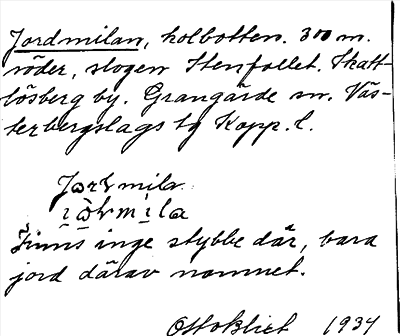 Jordmilan, kolbotten. 300 m.
söder, skogen Stenfallet. Skatt-
lösberg by. Grangärde sn. Väs-
terbergslags tg Kopp. l.
Jordmila
Finns inge stybbe där, bara
jord därav namnet.
Otto Blixt 1934